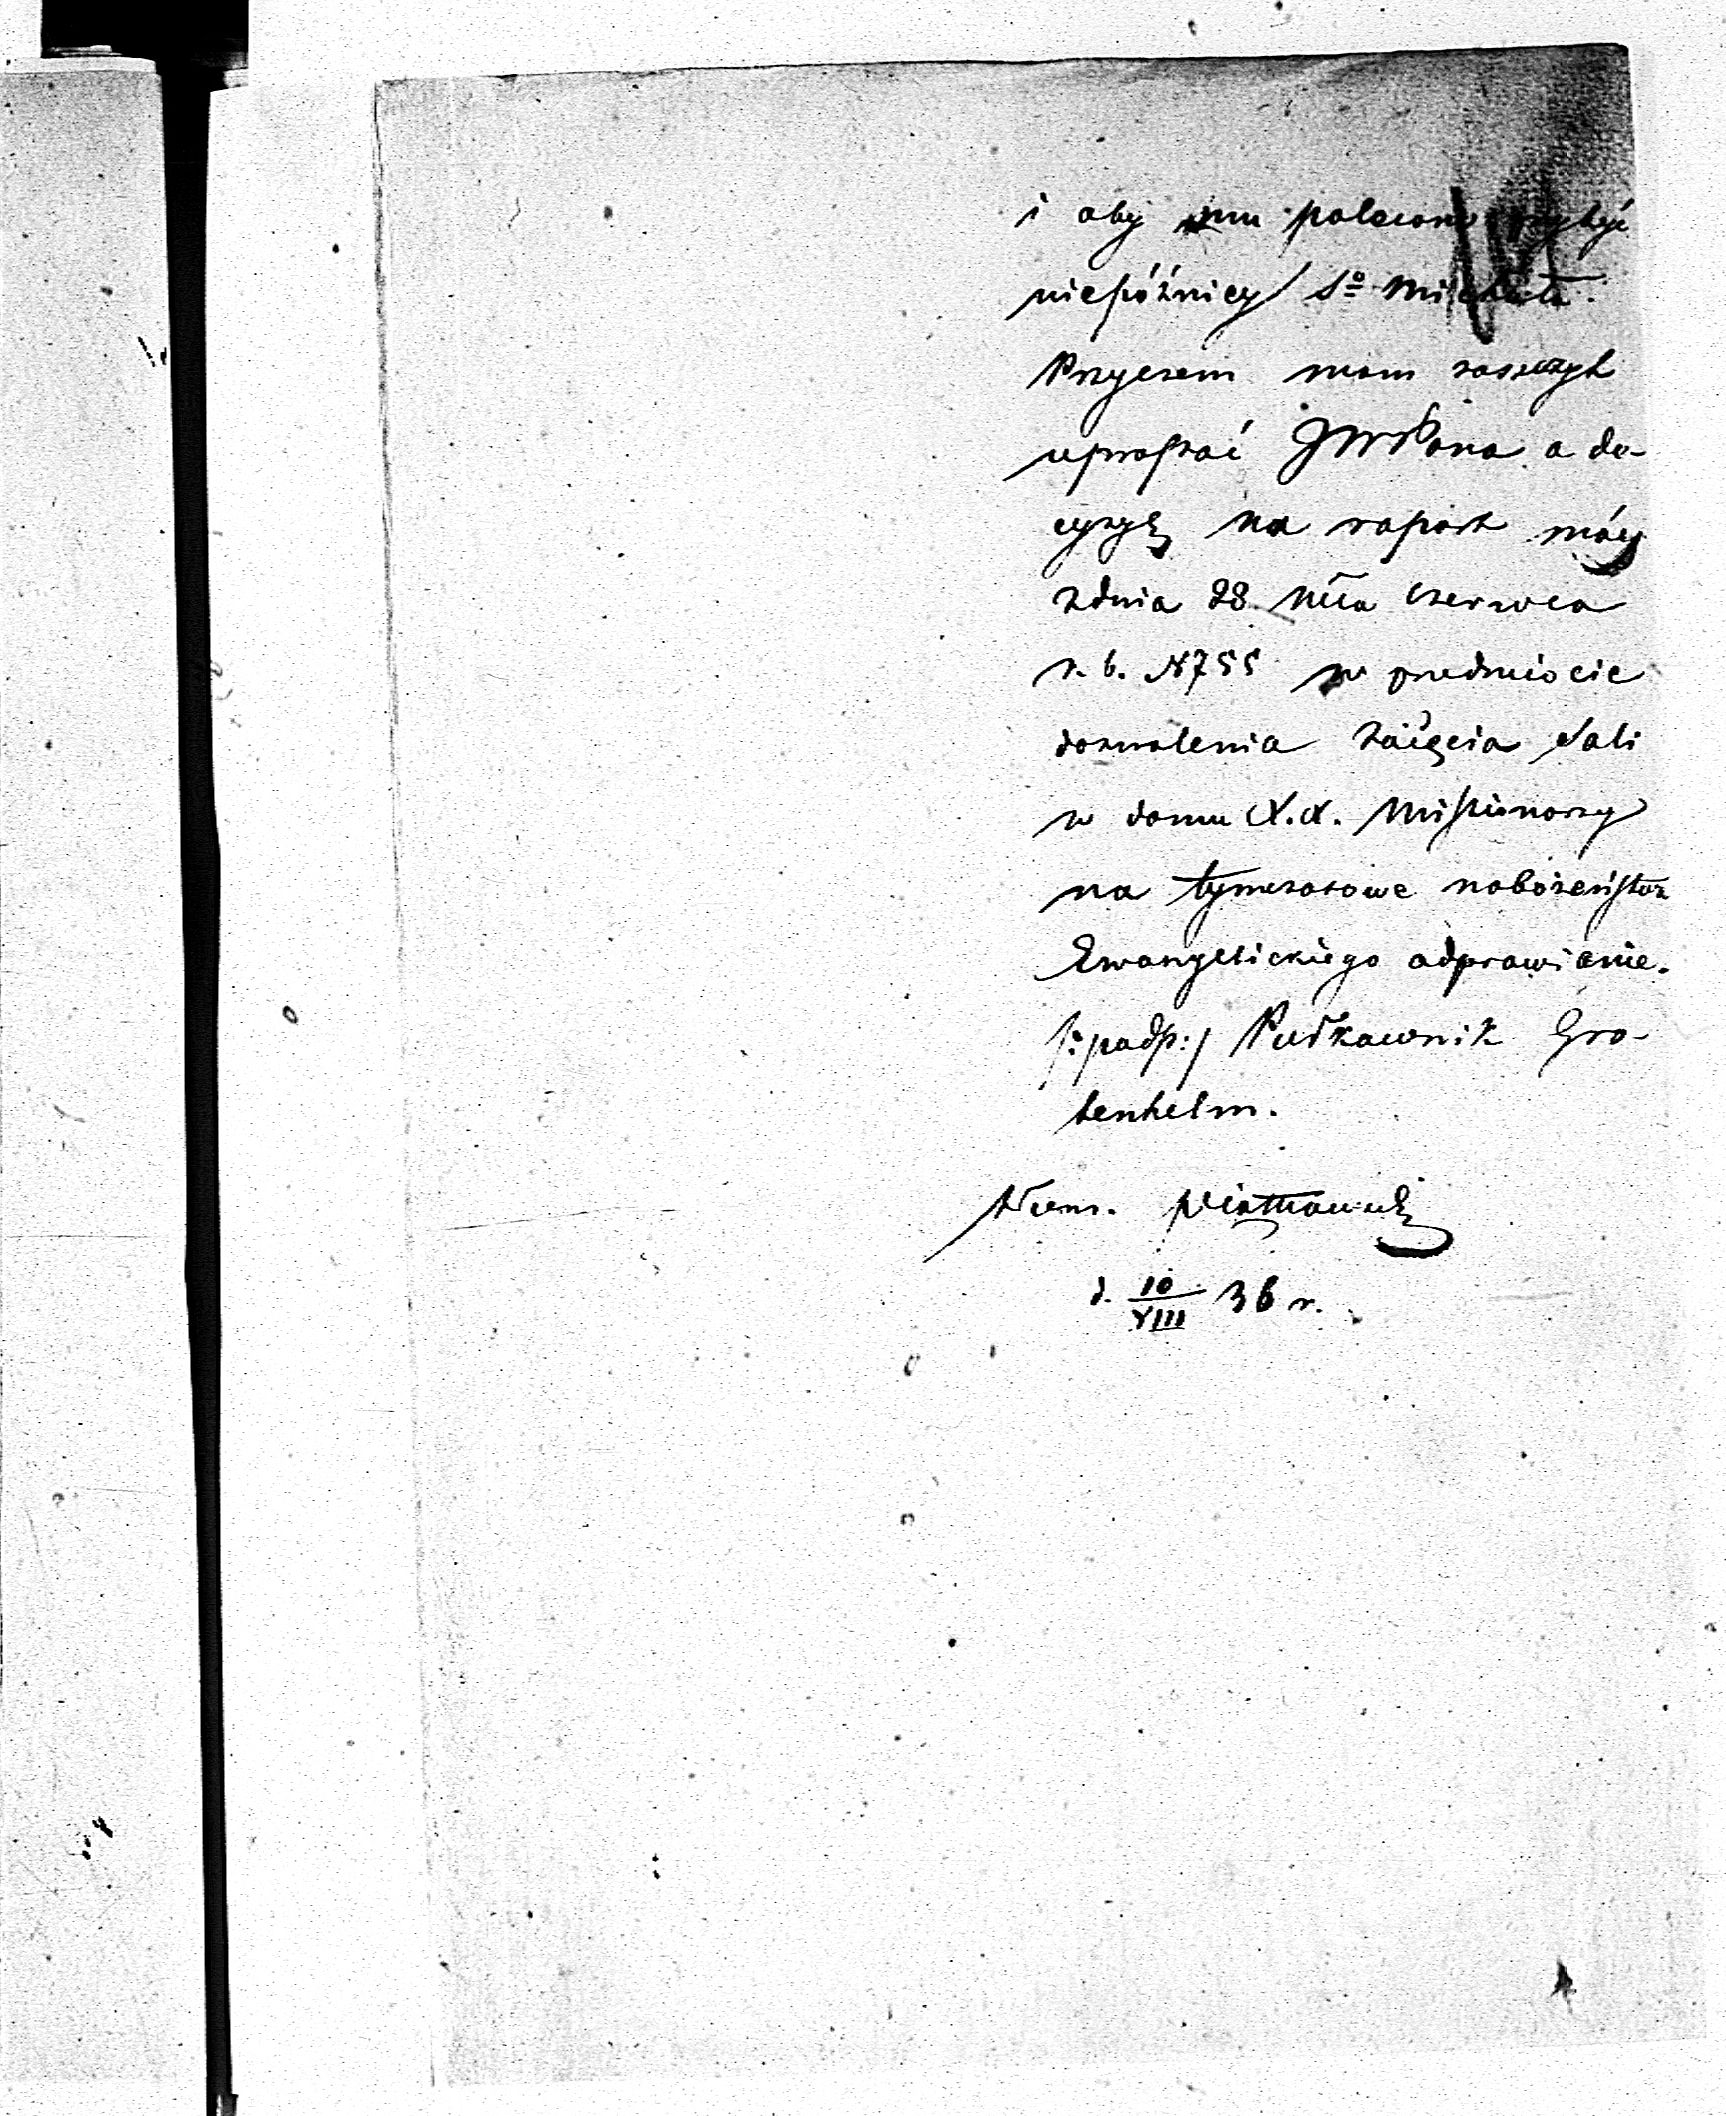 i aby mu polecono przybyć
niepóźniey So Michała.
Przyczem mam zaszczyt
uprafzać JWPana a de-
cyzyę na raport móy
zdnia 28 mca Czerwca
r. b. N 755 w przedmiocie
dozwolenia zaięcia Sali
w domu X.X. Mifsionarzy
na tymczasowe nabożeńftwa
Ewangelickiego odprawianie.
/:podp:/ Pułkownik Gro-
tenhelm.
Piątkowski
d. 10/VIII 36 r.